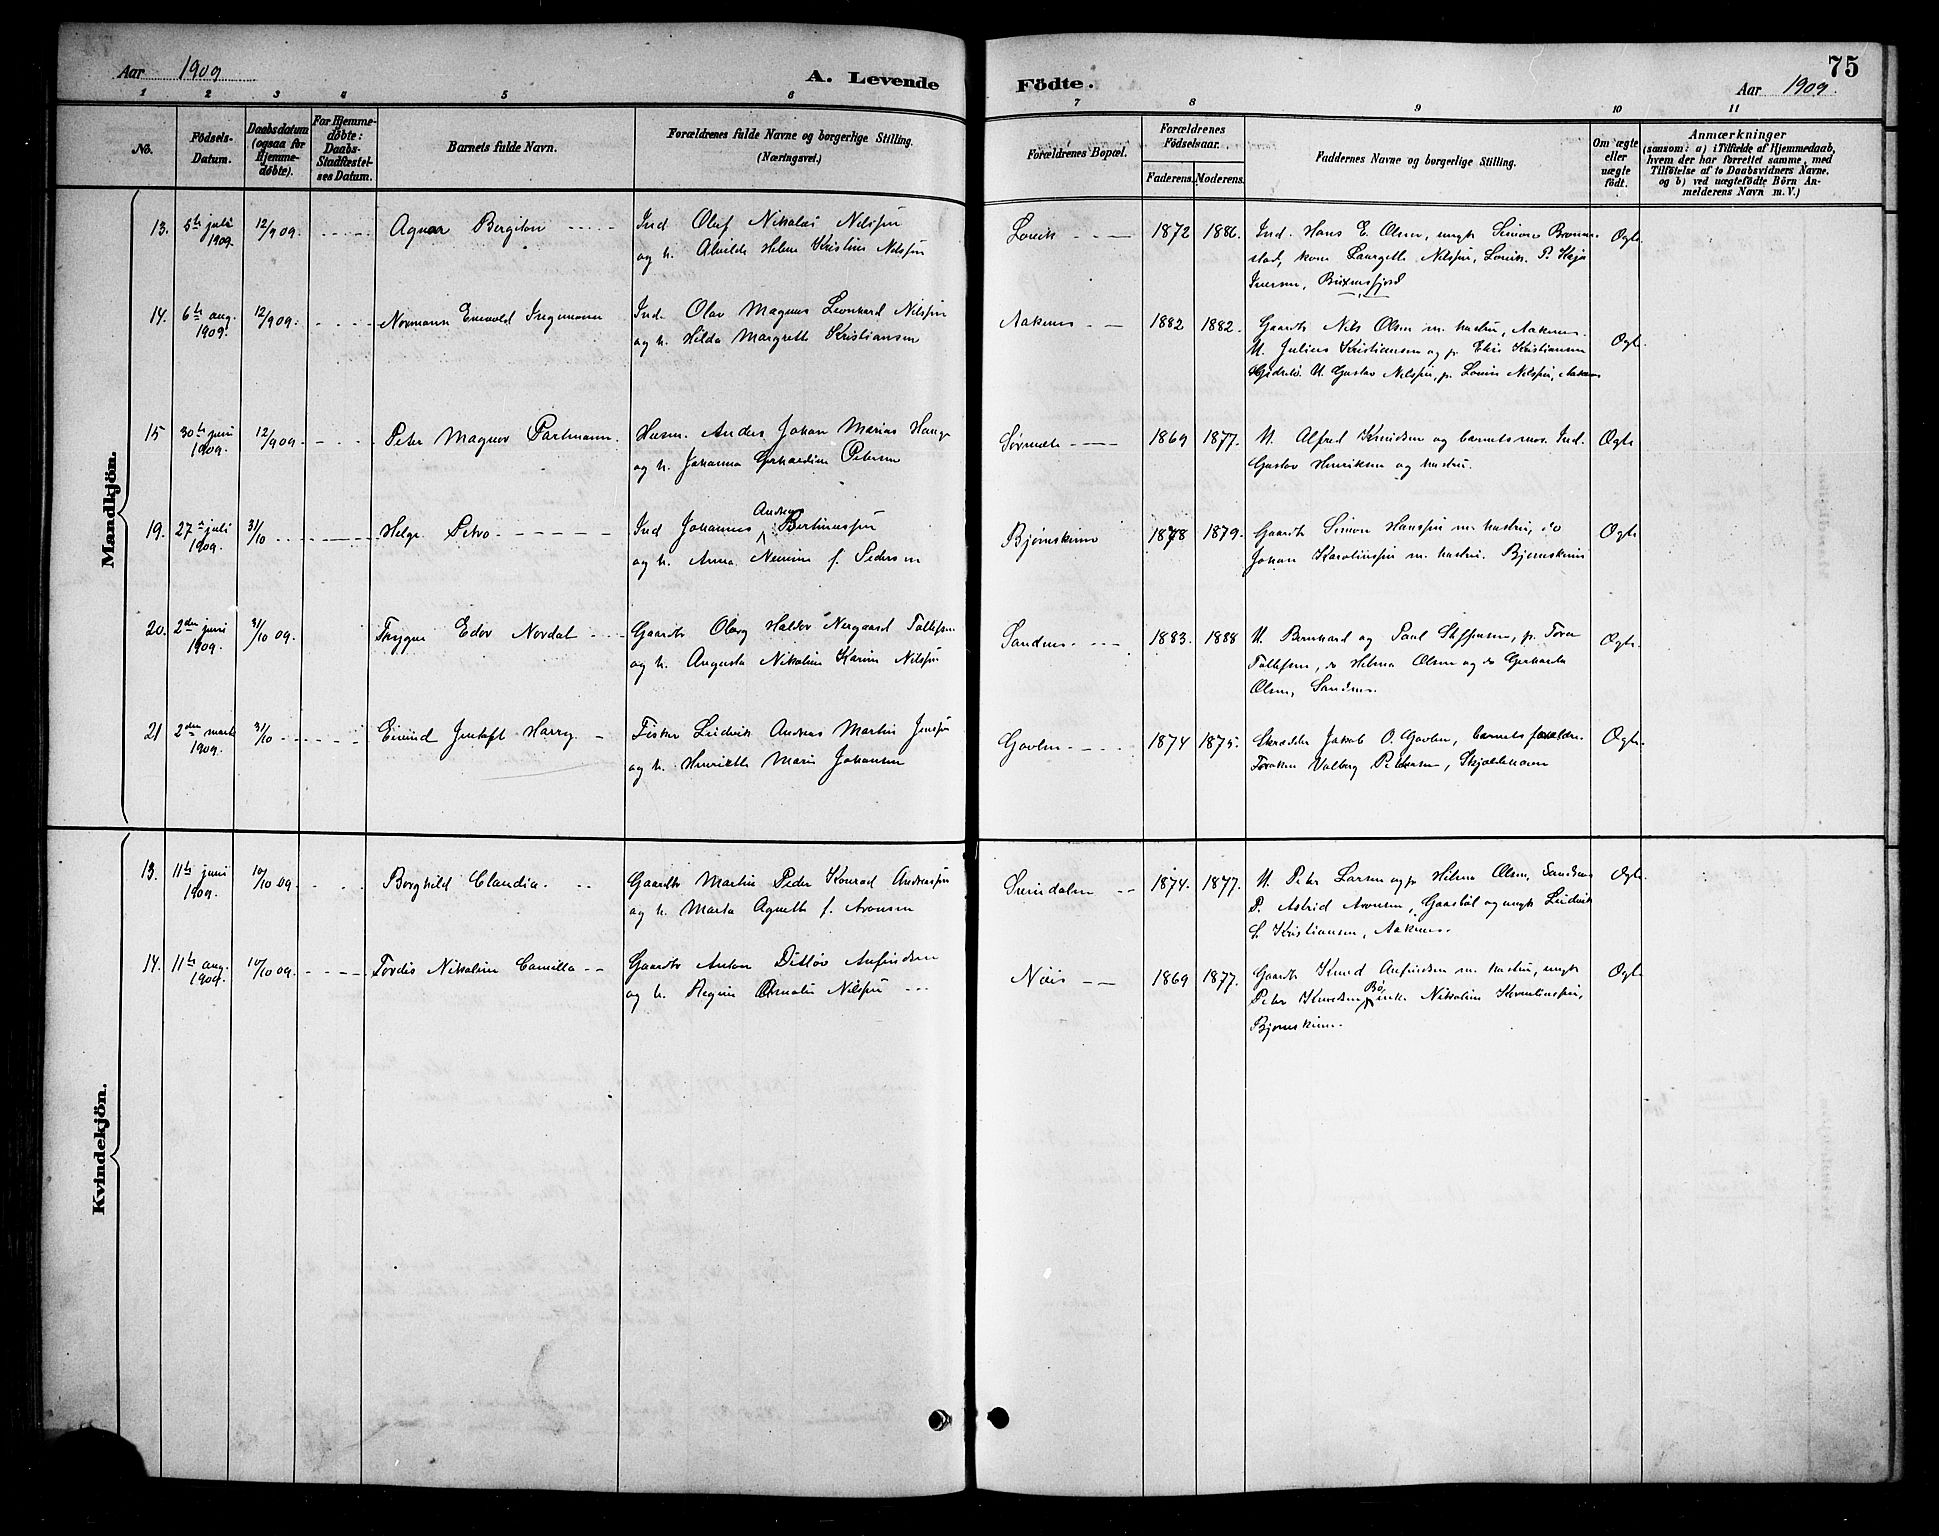 Aar 1909
A. Levende
Födte.
Aar 1909.
75
1 2 3 4 5 6 7 8 9 10 11
No.
Födsels-
Datum.
Daabsdatum
(ogsaa for
Hjemme-
döbte).
For Hjemme-
döbte:
Daabs-
Stadfæstel-
ses Datum.
Barnets fulde Navn.
Forældrenes fulde Navne og borgerlige Stilling.
(Næringsvei.)
Forældrenes Bopæl.
Forældrenes
Födselsaar.
Faderens. Moderens.
Faddernes Navne og borgerlige Stilling.
Om ægte
eller
uægte
födt.
Anmærkninger
(saasom: a) i Tilfælde af Hjemmedaab,
hvem der har forrettet samme, med
Tilföielse af to Daabsvidners Navne,
og b) ved uægtefödte Börn An-
melderens Navn m. V.)
Mandkjön.
13. 5te juli
1909. 12/9 09. Agnar Bergiton
Ind. Olaf Nikolai Nilssen
og h. Alvilde Helene Kristine Nilssen
Lovik 1872 1886.
Ind. Hans E. Olsen, ungk Simon Bromm-
stad, kone Laurette Nilssen, Lovik. P.
Iversen, Buxnesfjord
Ægte
14. 6te aug.
1909. 12/9 09. Normann Enevold Ingemann
Ind. Olav Magnus Leonhard Nilssen
og h. Hilda Margrethe Kristiansen
Aaknes 1882 1882.
Gaardbr Nils Olsen m. hustru, Aaknes.
U. Julius Kristiansen og p. Elise Kristiansen
U. Gustav Nilssen, p. Lovise Nilssen, Aaknes
Ægte.
15 30te juni
1909. 12/9 09. Peter Magnor Partmann.
Husm. Anders Johan Marius Hauge
og h. Johanna Gerhardine Petersen
1869 1877.
U. Alfred Knudsen og barnets mor. Ind.
Gustav Henriksen og hustru.
Ægte
19. 27de juli
1909. 31/10 Helge Petro
Ind Johannes Andreas Bertinussen
og h. Anna f. Pedersen
Bjørnskinn 1878 1879.
Gaardbr Simon Hanssen m. hustru, do
Johan Karolinssen m. hustru. Bjørnskinn
Ægte
20. 2den juni
1909. 31/10 09. Trygve Edor Nordal
Gaardbr Olavg Haldor Nergaard Tollefsen
og h. Augusta Nikoline Karine Nilssen
Sandnes 1883. 1888
U. Bernhard og Paul Steffensen, p. Tora
Tollefsen, do Helma Olsen og do Gerharda
Olsen, Sandnes.
Ægte.
21 2den marts
1909. 31/10 Eivind Gustaft Harry
Fisker Ludvik Andreas Martin Jenssen
og h. Henriette Marie Johansen
Gavlen 1874 1875.
Skrædder Jakob O. Gavlen, barnets forældre.
Frøken Valborg Pettersen, Skjoldehavn
Ægte.
Kvindekjön.
13. 11te juni
1909. 10/10 09. Borghild Claudia.
Gaardbr Martin Peder Konrad Andreassen
og h. Marta Agnethe f. Aronsen
1874. 1877.
U. Peter Larsen og p. Helma Olsen, Sandnes
P. Astrid Aronsen, Gaasbøl og ungk Ludvik
L. Kristiansen, Aaknes.
Ægte.
14. 11te aug.
1909. 10/10 09. Tordis Nikoline Camilla
Gaardbr Anton Ditløv Anfindsen
og h. Regine Amalie Nilssen
Nøis 1869 1877.
Gaardbr Knud Anfindsen m. hustru, ungk
Peter Knudsen, Bø, enke Nikoline Kornelinssen,
Bjørnskinn.
Ægte